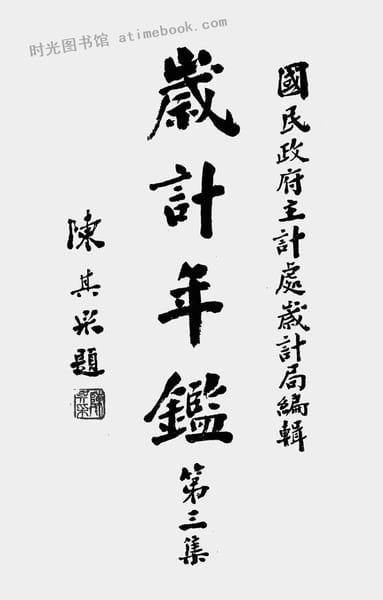 时光图书馆 atimebook.com
國民政府主計處歲計局編輯
歲計年鑑 第三集
陳其采題